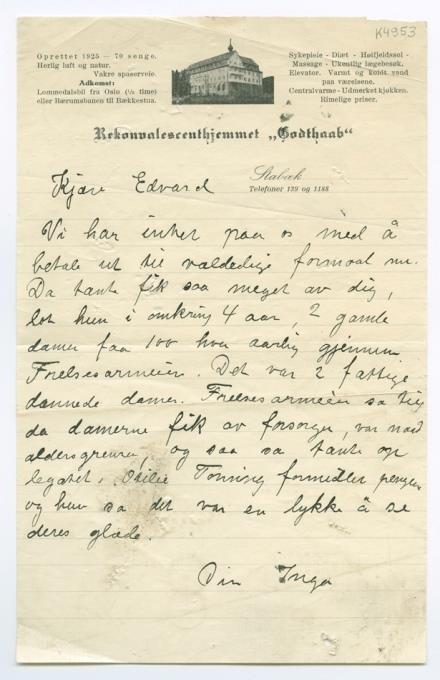 K4953
Oprettet 1925 — 70 senge.
Herlig luft og natur.
Vakre spaserveie.
Adkomst:
Lommedalsbil fra Oslo (½ time)
eller Bærumsbanen til Bekkestua.
Sykepleie - Diæt - Høifjeldssol -
Massage - Ukentlig lægebesøk.
Elevator. Varmt og koldt vand
paa værelsene.
Centralvarme - Udmerket kjøkken.
Rimelige priser.
Rekonvalescenthjemmet „Godthaab"
Stabæk
Telefoner 139 og 1188
Kjære Edvard
Vi har intet paa os med å
betale ut til veldedige formaal nu.
Da tante fik saa meget av dig,
lot hun i omkring 4 aar, 2 gamle
damer faa 100 hver aarlig gjennem
Frelsesarméen. Det var 2 fattige
dannede damer. Frelsesarméen sa til
da damerne fik av forsorgen, var naad
aldersgrensen, og saa sa tante op
legatet. Otilie Tonning formidlet pengene
og hun sa det var en lykke å se
deres glæde.
Din Inga